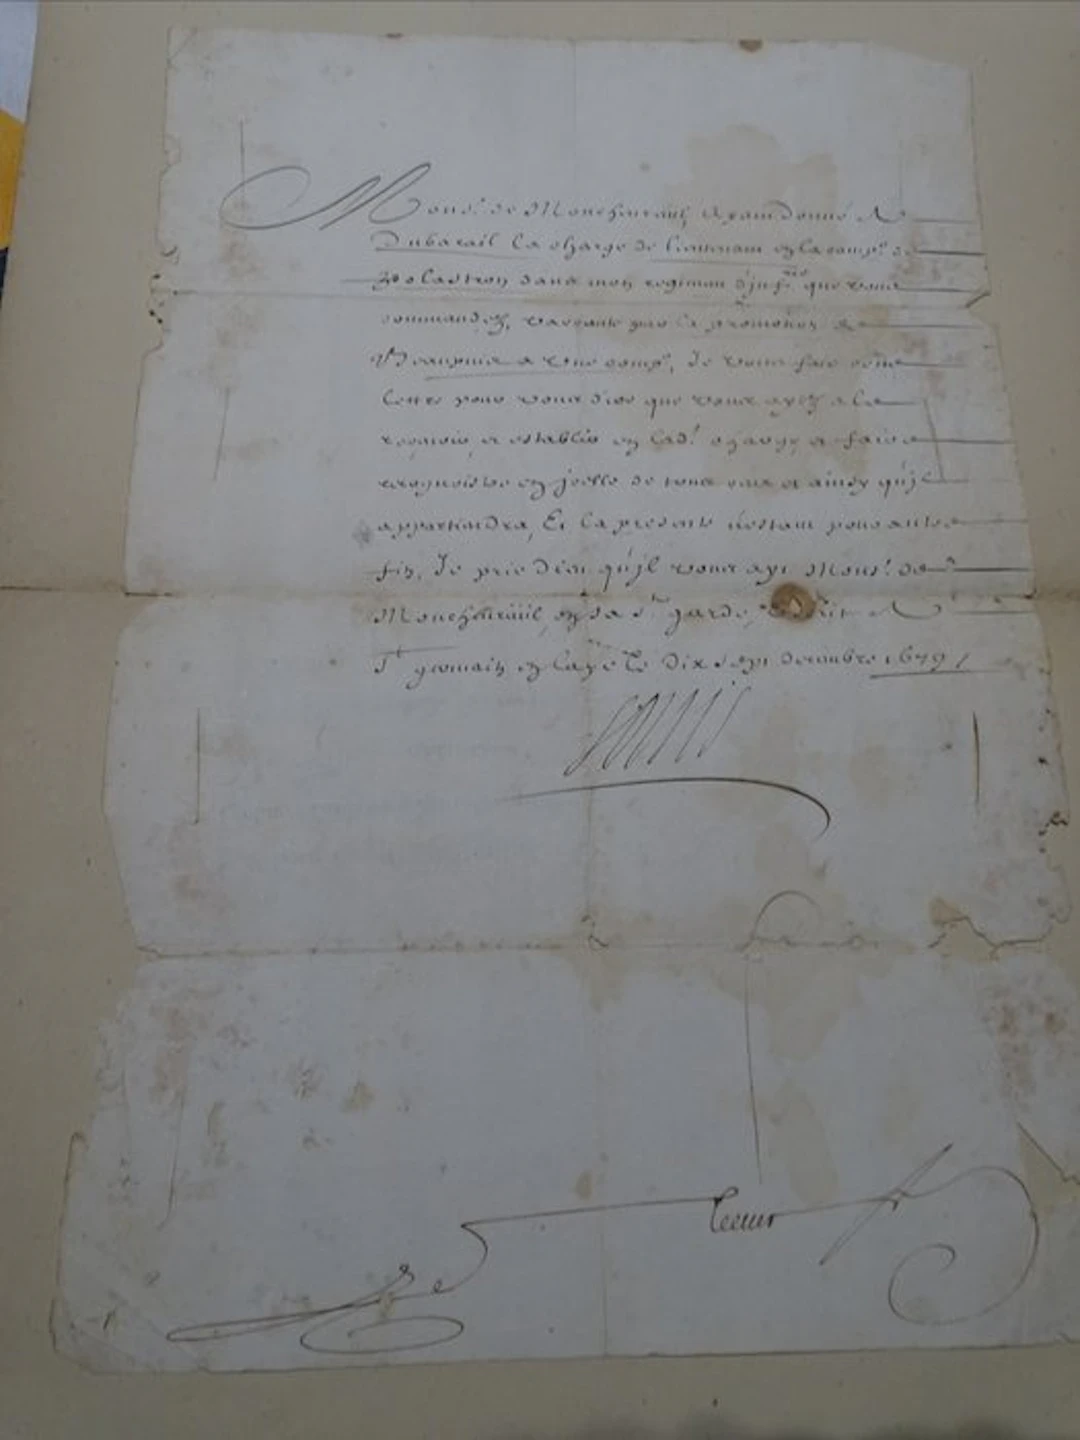 Mons.r de Monchevreuil, Ayant donné A
Dubarail la charge de lieutenant en la comp.e de
Polastron dans mon regiment d'inf.rie que vous
commandez, vacante par la promotion de
Beaupuis a une comp.e, Je vous fais cette
lettre pour vous dire que vous ayez a le
recevoir et establir en lad.e charge et faire
recognoistre en jcelle de tous ceux et ainsy qu'jl
appartiendra, Et la presente n'estant pour autre
fin, Je prie Dieu qu'jl vous ayt Mons.r de
Monchevreuil en sa s.te garde, Escrit A
S.t germain en laye le dix sept decembre 1679 /
Louis